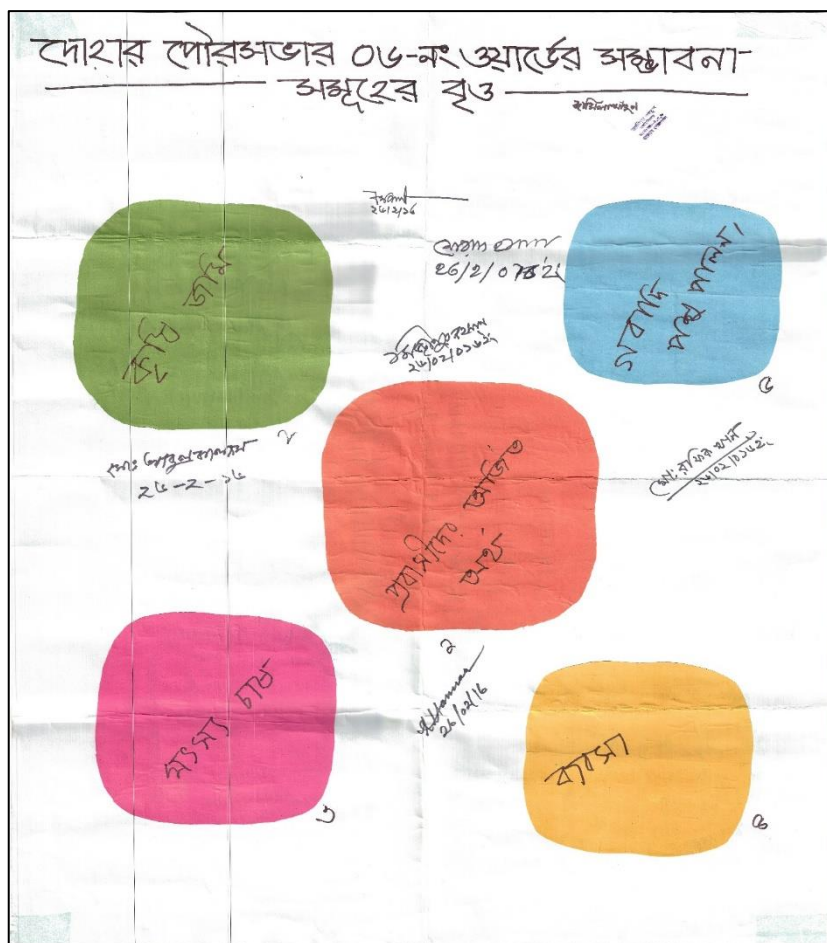 দোহার পৌরসভার ০৬-নং ওয়ার্ডের সম্ভাবনা
সমূহের বৃত্ত
২৬/২/১৬
26/2/
কৃষি জমি
গবাদি
পশু পালন।
২৬/০২/২০১৬ইং
৫
২
মোঃ আবুল কালাম
২৬-২-১৬
মোঃ রফিক খান
২৬/০২/২০১৬ইং
প্রবাসীদের অর্জিত
অর্থ
১
Hannan
26/02/16
মৎস্য চাষ
৩
ব্যবসা
৪